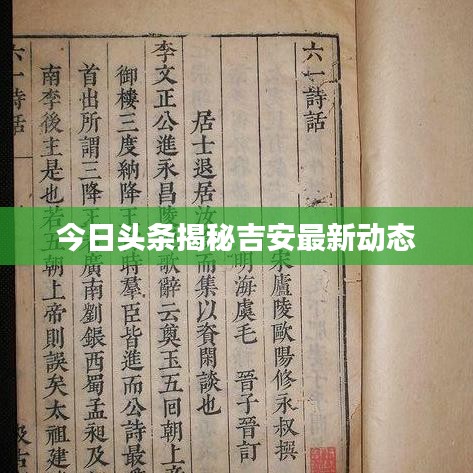 六一詩話
宋廬陵歐陽修永叔撰
明海虞毛 晉子晉訂
居士退居汝 而集以資閑談也
李文正公進永昌陵 歌辭云奠玉五回
御樓三度納降 時羣臣皆進而公詩最
首出所謂三降王 廣南劉鋹西蜀孟昶及
南李後主是也若五朝上帝則誤矣太祖建
六一詩話
今日头条揭秘吉安最新动态